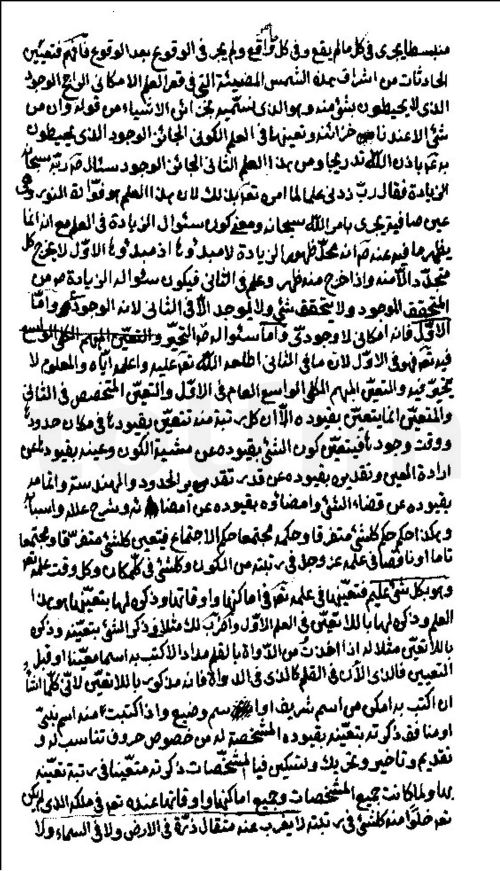 منبسطا يجرى فى كل ما لم يقع وفى كل واقع ولم يجر فى الوقوع بعد الوقوع فافهم فتعيين
الحادثات من اشراف هذه الشمس المضيئة التى فى قعر العلم الامكانى الراجح الوجود
الذى لا يحيطون بشئ منه وهو الذى نسميه بخزائن الاشياء من قوله وان من
شئ الا عندنا خزائنه وتعينها فى العلم الكونى الجائز الوجود الذى يحيطون
به باذن الله تدريجا ومن هذا العلم الثانى الجائز الوجود سئال ربه سبحانه
الزيادة فقال رب زدنى علما لما امن بذلك لان هذا العلم هو فوارة النور وهى
عين صافية يجرى بامر الله سبحانه ومعنى كون سئوال الزيادة فى العلم مع انه انما
يظهر ما فيه عنه انه محدد ظهور الزيادة لا مبدؤها اذ مبدؤها الاول لا يخرج كل
متجدد الا منه واذا خرج منه ظهر وعلم فى الثانى فيكون سئواله الزيادة من
المتحقق الموجود ولا يتحقق شئ ولا يوجد الا فى الثانى لانه الوجود واما
الاول فانه امكانى لا وجودى واما سئواله التحير
فيه فهو فى الاول لان ما فى الثانى اطلعه الله عليه واعلمه اياه والمعلوم لا
يتحير فيه والتعين المبهم الكلى الواسع العام فى الاول والتعين المتخصص فى الثانى
والمتعين انما يتعين بقيوده الا ان كل رتبة منه تتعين بقيودها فى مكان حدودها
ووقت وجودها فيتعين كون الشئ بقيوده عن مشية الكون وعينه بقيودها عن
ارادة العين وتقديره بقيوده عن قدر تقديره والحدود والهندسة واتمامه
بقيوده عن قضاء الشئ وامضاؤه بقيوده عن امضائه وشرح علله واسبابه
وهكذا حكم كلشئ متفرقا وحكمه مجتمعا حكم الاجتماع فيتعين كلشئ متفرقا ومجتمعا
تاما او ناقصا فى علمه عز وجل فى رتبته من الكون وكلشئ فى كل مكان وكل وقت علمه
وهو بكل شئ عليم فتعينها فى علمه فى اماكنها واوقاتها وذكره لها بتعينها هو هذا
العلم وذكره لها باللاتعين فى العلم الاول واضرب لك مثلا فى ذكر الشئ بتعينه وذكره
باللاتعين مثاله اذا اخذت من الدواة بالقلم مدادا لاكتب به اسما معينا او قبل
التعيين فالذى الآن فى القلم كالذى فى الدواة فانه مذكور باللاتعين لانى كلما اشاء
ان اكتب به امكن من اسم شريف او اسم وضيع واذا كتبت منه اسم نبى
او منافق ذكرته بتعينه بقيوده المشخصة له من خصوص حروف تناسب له و
تقديم وتاخير وتحريك وتسكين فبالمشخصات ذكرته متعينا فى رتبة تعينه
بها ولما كانت جميع المشخصات وجميع اماكنها واوقاتها عنده فى ملكه الذى لم يكن
خلوا منه كلشئ فى رتبته لا يعزب عنه مثقال ذرة فى الارض ولا فى السماء ولا